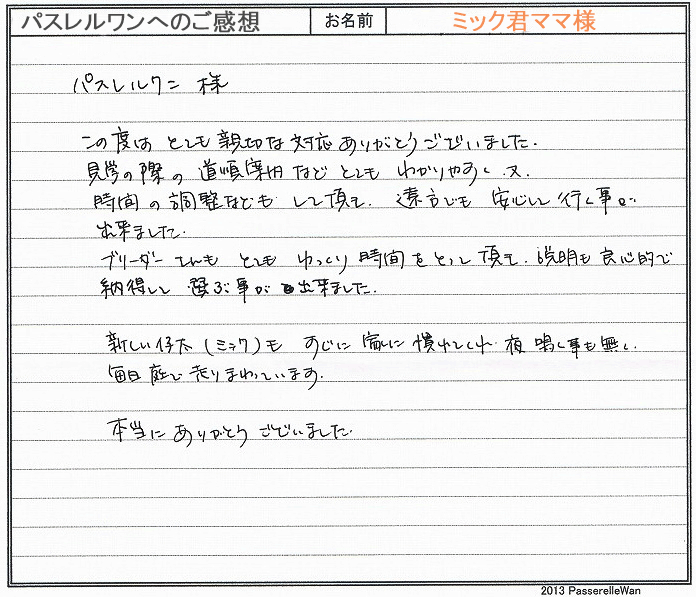 パスレルワンへのご感想 お名前 ミック君ママ様
パスレルワン 様
この度は とても 親切な 対応 ありがとうございました.
見学の際の 道順案内など とても わかりやすく、又、
時間の調整なども して頂き、遠方でも 安心して 行く事が
出来ました.
ブリーダーさんも とても ゆっくり 時間をとって 頂き、説明も 良心的で
納得して 選ぶ事が 出来ました.
新しい仔犬 (ミック)も すぐに 家に 慣れてくれ 夜 鳴く事も無く.
毎日 庭で 走りまわっています.
本当に ありがとう ございました.
2013 PasserelleWan